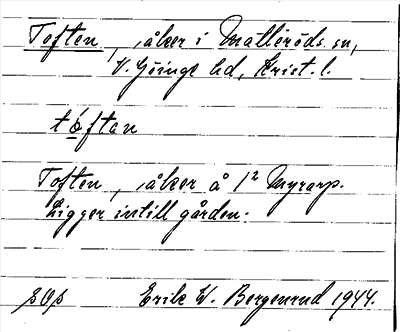 Toften, åker i Matteröds sn,
V. Göinge hd, Krist. l.
tóftan
Toften, åker å 1² Myrarp.
Ligger intill gården.
Erik W. Bergenrud 1944.